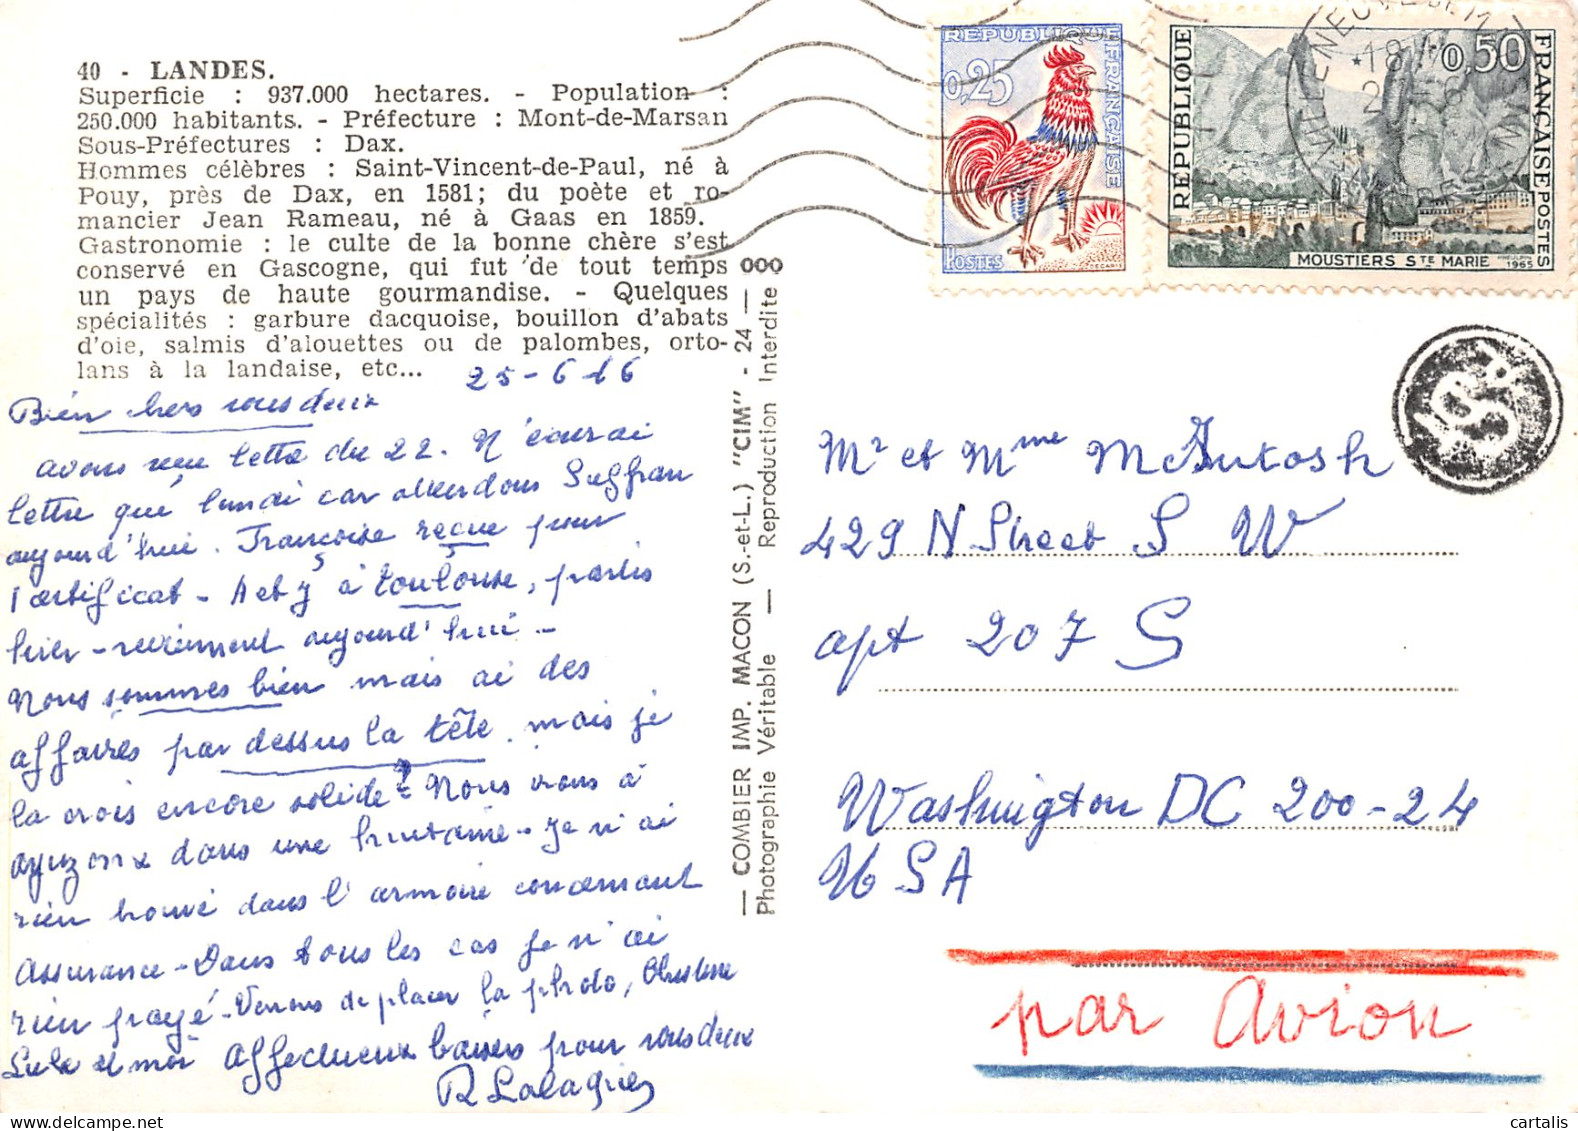 40 - LANDES.
Superficie : 937.000 hectares. - Population :
250.000 habitants. - Préfecture : Mont-de-Marsan
Sous-Préfectures : Dax.
Hommes célèbres : Saint-Vincent-de-Paul, né à
Pouy, près de Dax, en 1581; du poète et ro-
mancier Jean Rameau, né à Gaas en 1859.
Gastronomie : le culte de la bonne chère s'est
conservé en Gascogne, qui fut de tout temps
un pays de haute gourmandise. - Quelques
spécialités : garbure dacquoise, bouillon d'abats
d'oie, salmis d'alouettes ou de palombes, orto-
lans à la landaise, etc...
25-6-66
Bien chers vous deux
avons reçu lettre du 22. N'aurai
lettre que lundi car attendons Suffran
aujourd'hui. Françoise reçue pour
1 certificat - A et J à Toulouse, partis
hier - reviennent aujourd'hui -
Nous sommes bien mais ai des
affaires par dessus la tête. mais je
la crois encore solide? Nous irons à
dans une huitaine - Je n'ai
rien trouvé dans l'armoire concernant
assurance - Dans tous les cas je n'ai
rien payé - Venons de placer la photo,
Lula et moi affectueux baisers pour vous deux
R Lalagüe
— COMBIER IMP. MACON (S.-et-L.) "CIM" - 24 — 000
Photographie Véritable — Reproduction Interdite
REPUBLIQUE FRANÇAISE
0,25
POSTES
DECARIS
REPUBLIQUE FRANÇAISE
0,50
POSTES
MOUSTIERS STE MARIE
1965
VILLENEUVE DE M
18
S
Mr et Mme McIntosh
429 N Street S W
apt 207 S
Washington DC 200-24
USA
par avion